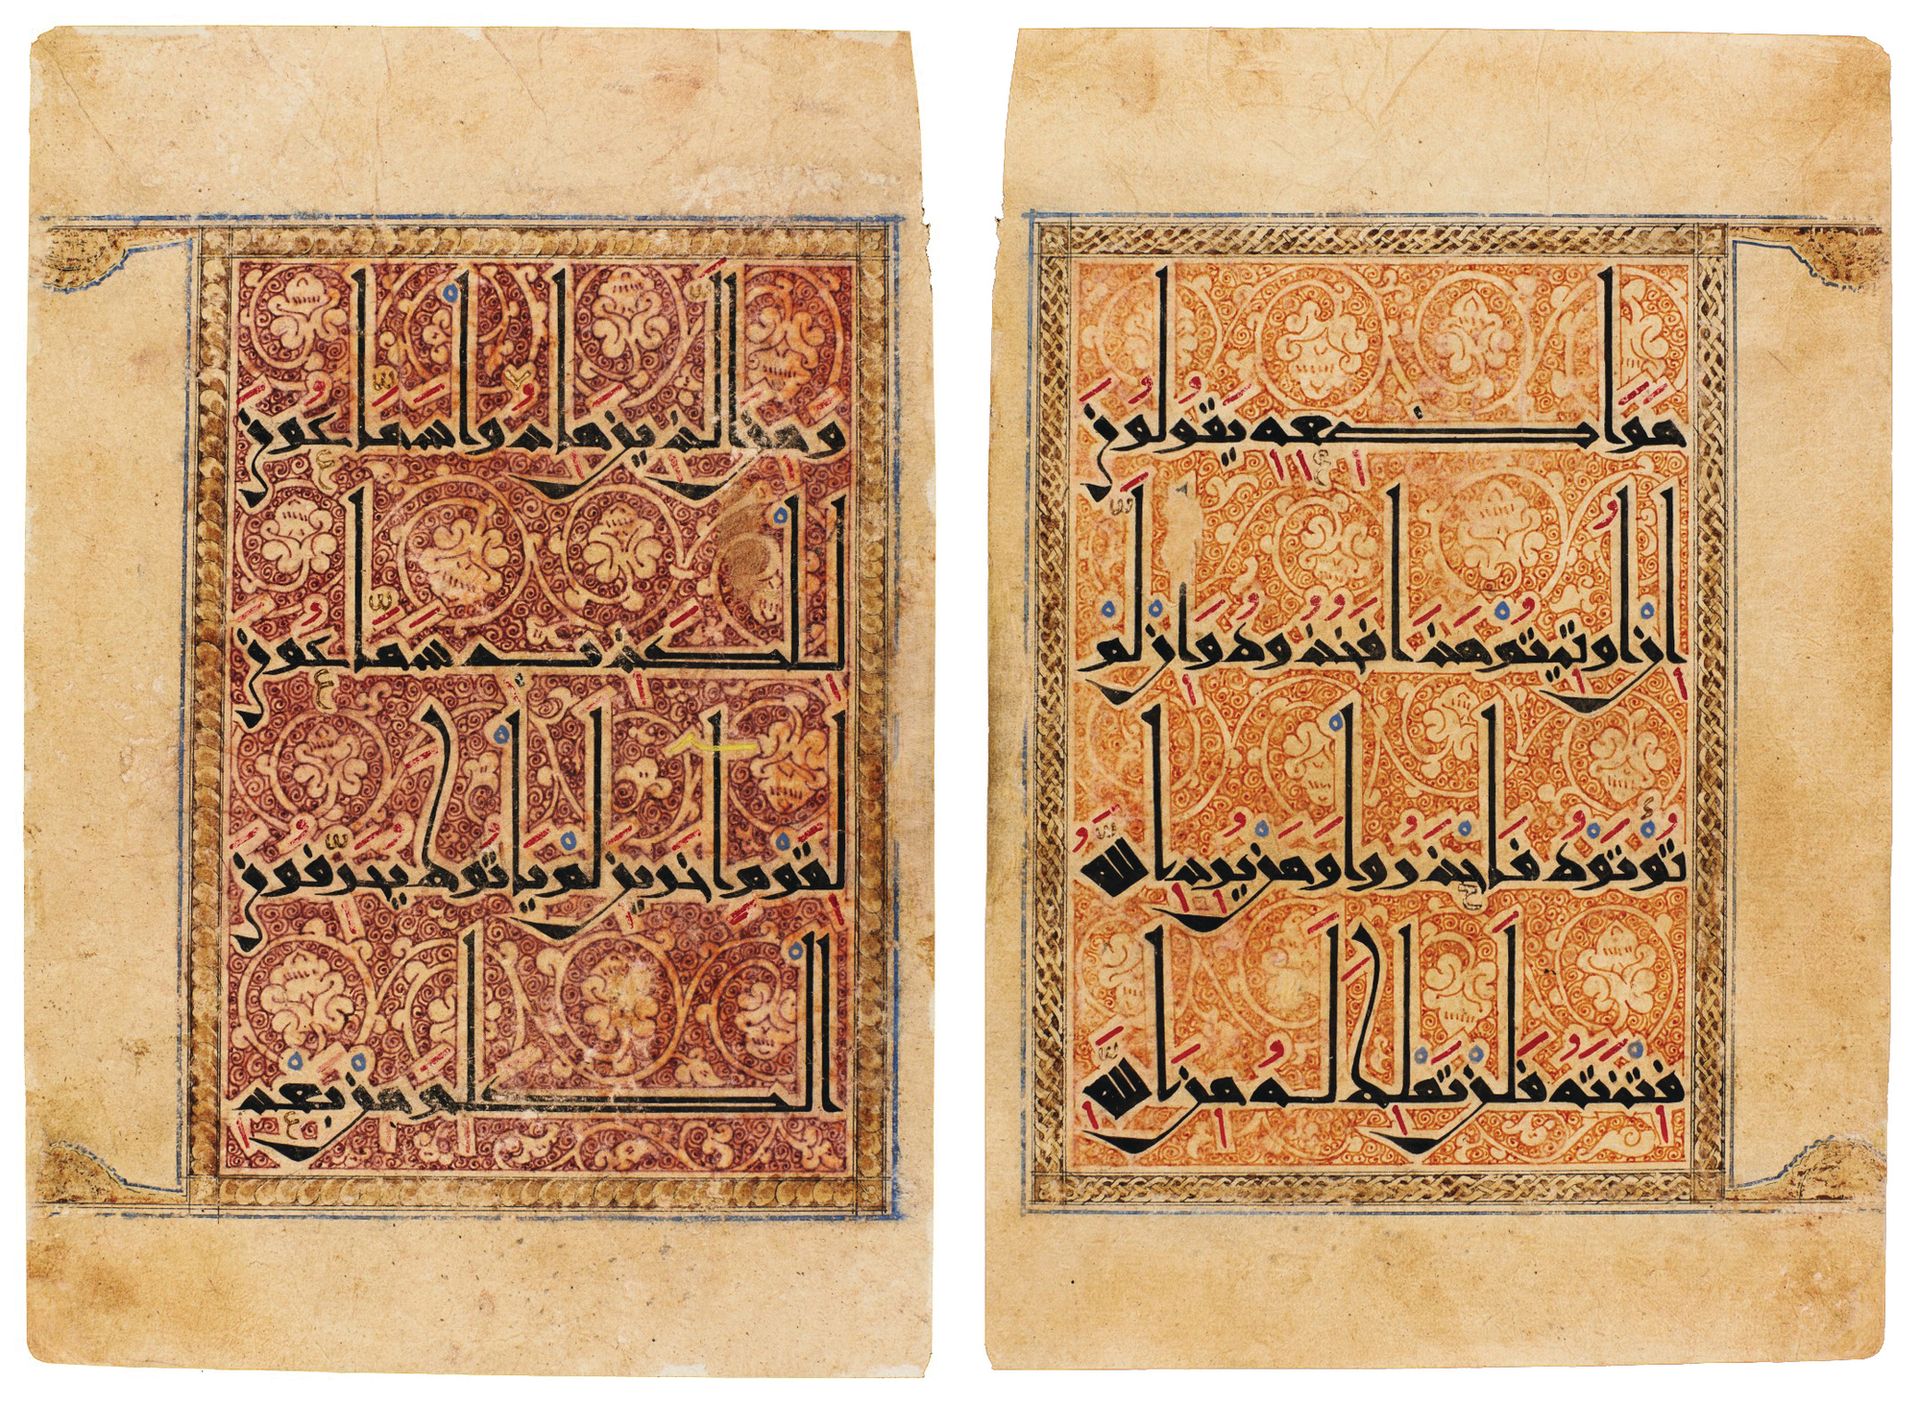 ومن الذين هادوا سماعون
للكذب سماعون
لقوم اخرين لم ياتوك يحرفون
الكلم من بعد
مواضعه يقولون
ان اوتيتم هذا فخذوه وان لم
توتوه فاحذروا ومن يرد الله
فتنته فلن تملك له من الله